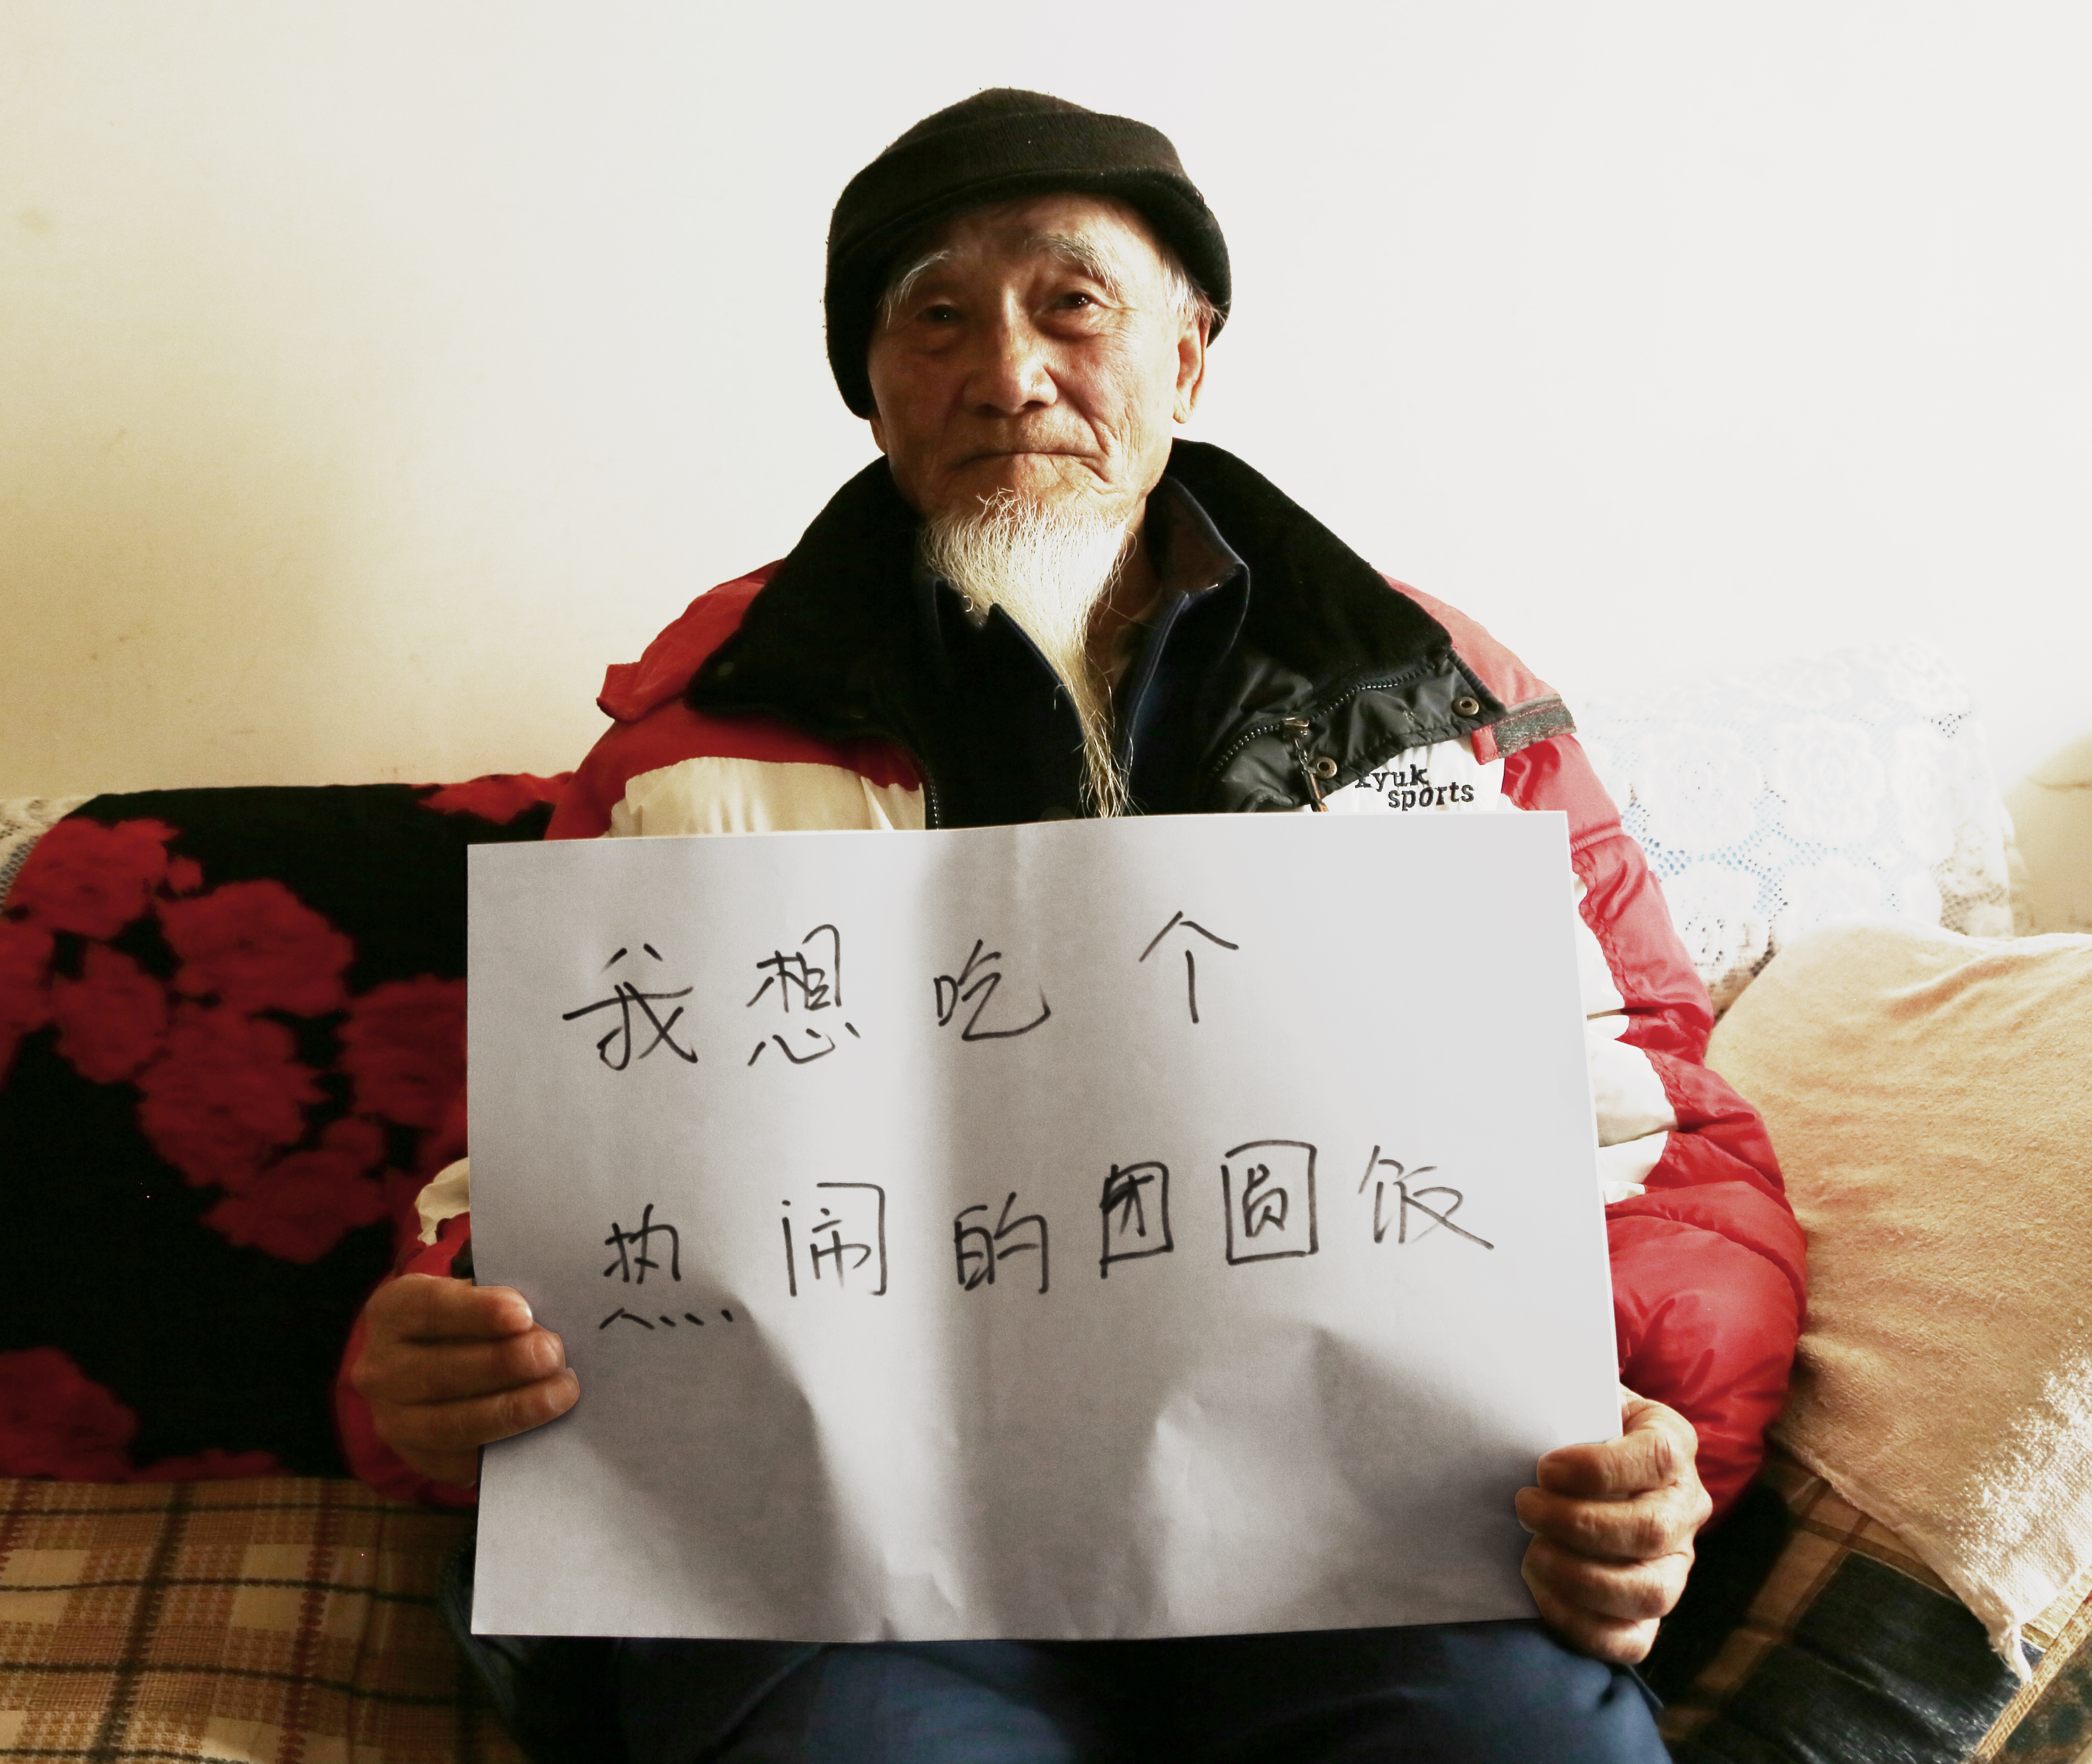 yuk
sports
我想吃个
热闹的团圆饭